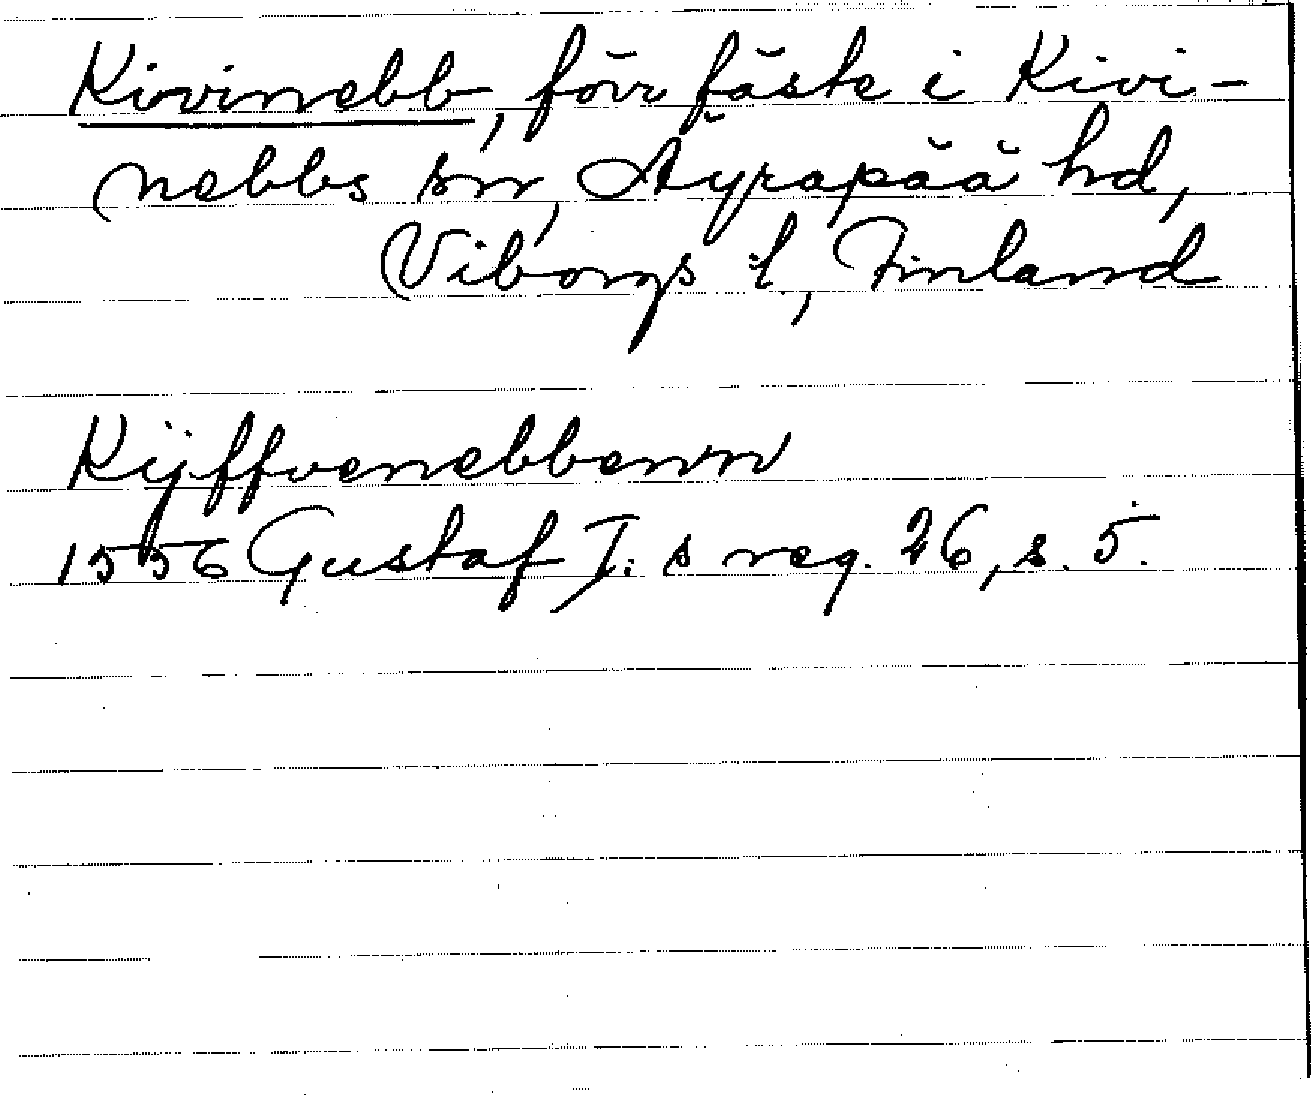 Kivinebb, förr fäste i Kivi-
nebbs sn, Äyräpää hd,
Viborgs l., Finland
Kÿffvenebbenn
1556 Gustaf I:s reg. 26, s. 5.